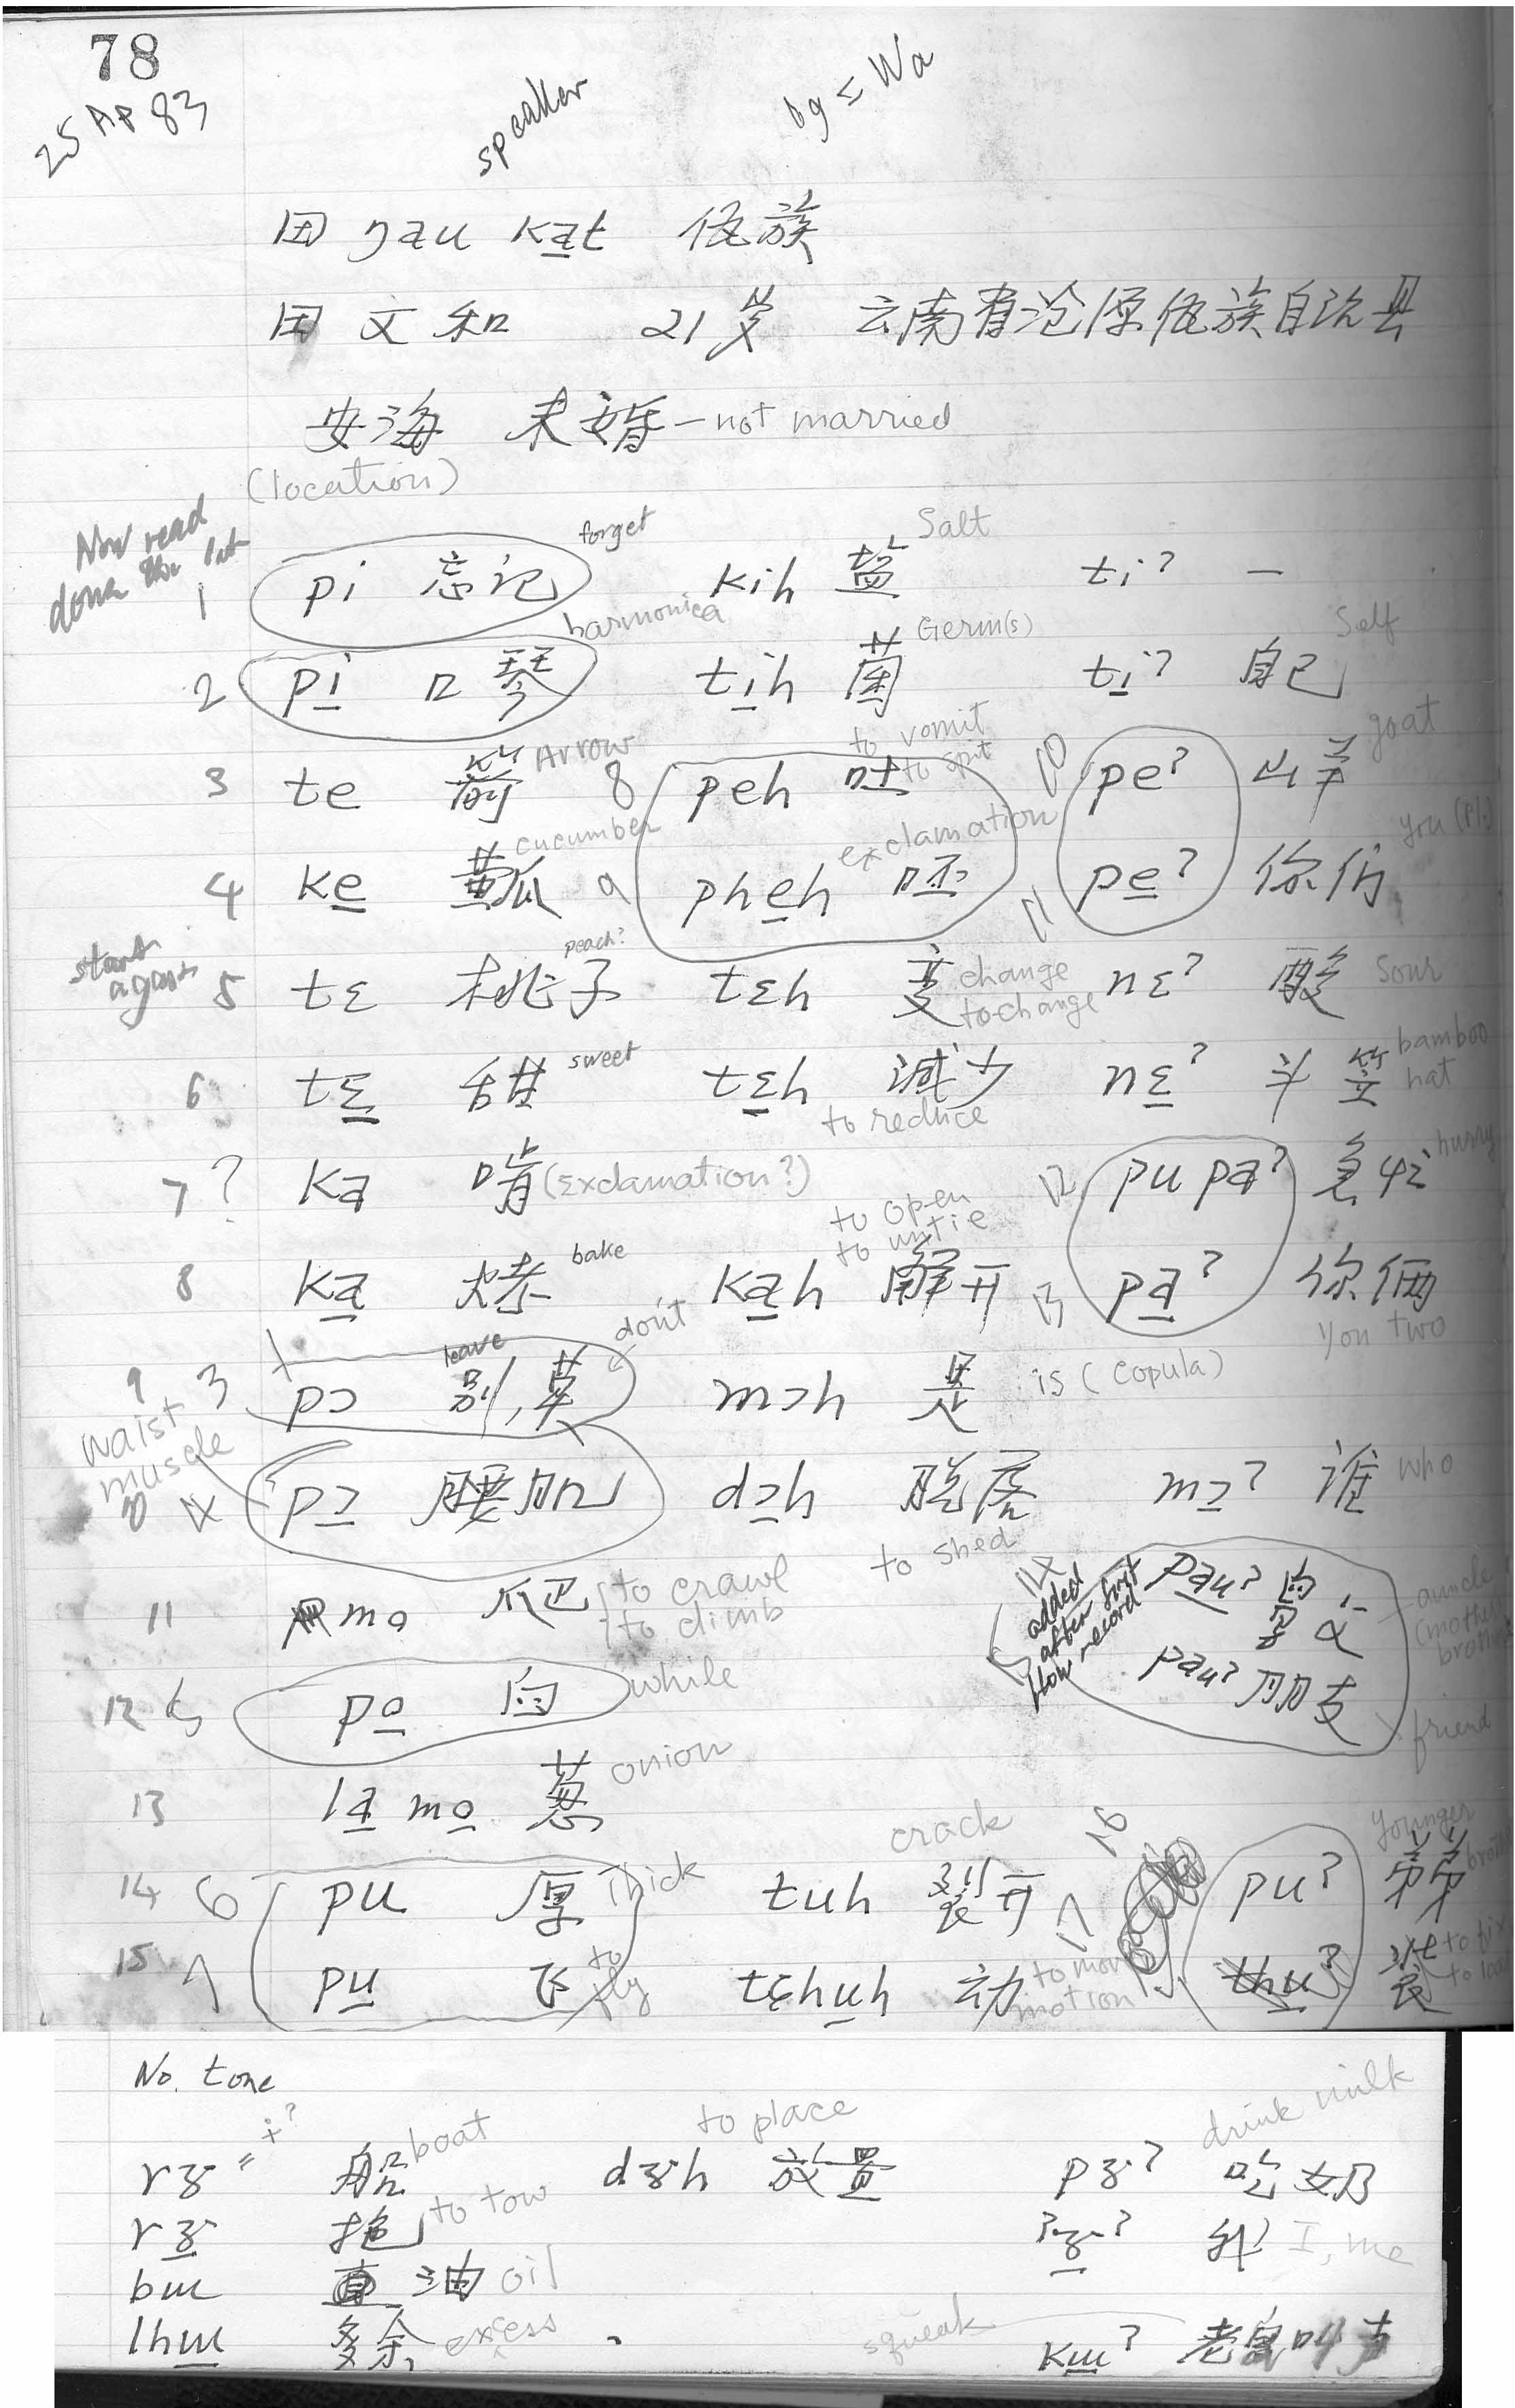 78
25 Ap 83
speaker
lg = Wa
田 ŋau ka̱t 佤族
田文和 21岁 云南省沧源佤族自治县
安海 未婚 — not married
(location)
Now read down the list
1 pi 忘记 forget kih 盐 Salt tiʔ 一
2 pi̱ 口琴 harmonica ti̱h 菌 Germ(s) ti̱ʔ 自己 Self
3 te 箭 Arrow 8 peh 吐 to vomit to spit 10 peʔ 山羊 goat
4 ke̱ 黄瓜 cucumber 9 phe̱h 呸 exclamation 11 pe̱ʔ 你们 you (pl.)
start again
5 tɛ 桃子 peach? tɛh 变 change to change nɛʔ 酸 Sour
6 tɛ̱ 甜 sweet tɛ̱h 减少 to reduce nɛ̱ʔ 斗笠 bamboo hat
7 ? ka 啃 (Exclamation?) 12 pu paʔ 急忙 hurry
8 ka̱ 烤 bake ka̱h 解开 to open to untie 13 pa̱ʔ 你俩 You two
9 3 pɔ 别, 草 leave don't mɔh 是 is (copula)
10 4 pɔ̱ 腰肌 waist muscle dɔ̱h 脱落 to shed mɔ̱ʔ 谁 who
11 mo 爬 to crawl to climb
14 added after first slow record
pa̱uʔ 舅父
pauʔ 朋友 friend
12 5 po̱ 白 while
13 la̱ mo̱ 葱 onion
14 6 pu 厚 thick tuh 裂开 crack 16 puʔ 弟弟 younger
15 7 pu̱ 飞 to fly tɕhu̱h 动 to move motion 17 thu̱ʔ 装 to fix
No. tone
rɤ = ɨ? 船 boat dɤh 放置 to place pɤʔ 吃奶 drink milk
rɤ̱ 拖 to tow ʔɤ̱ʔ 我 I, me
bɯ 油 oil
lhɯ̱ 多余 excess squeak kɯ̱ʔ 老鼠叫声